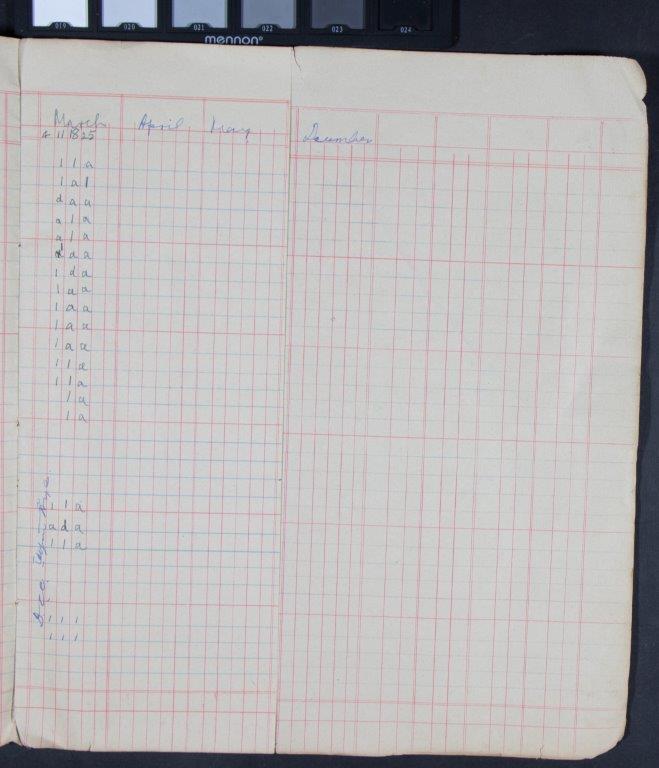 019 020 021 022 023 024
mennon®
March April May December
4 11 18 25
1 1 a
1 a 1
d a a
a 1 a
a 1 a
a a
1 d a
1 a a
1 a a
1 a a
1 a a
1 1 a
1 1 a
1 a
1 a
1 1 a
a d a
1 1 a
1 1 1
1 1 1